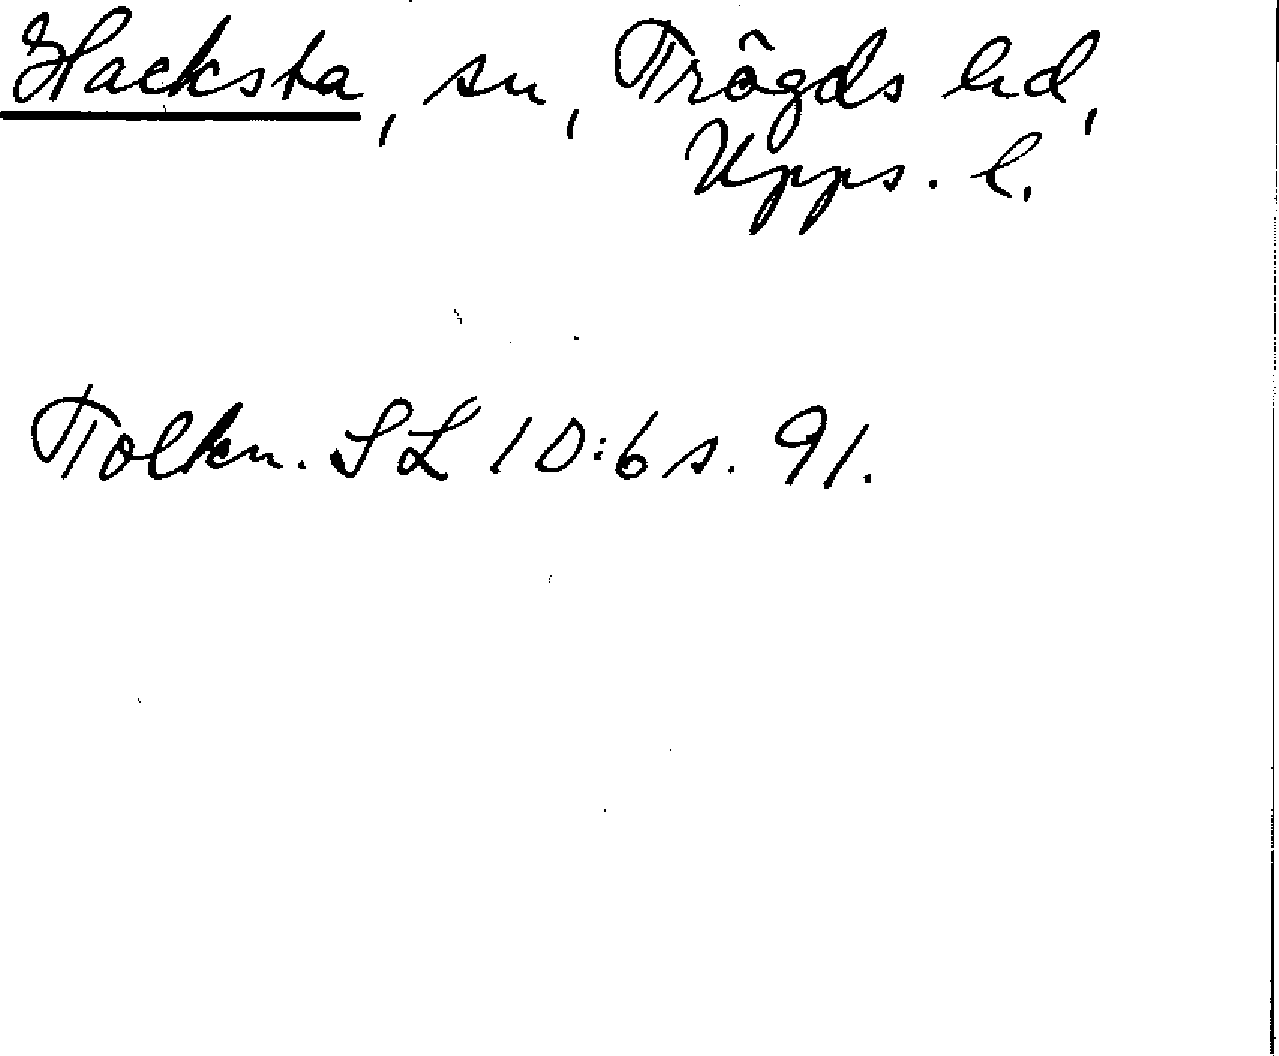 Hacksta, sn, Trögds hd,
Upps. l.
Tolkn. SL 10:6 s. 91.